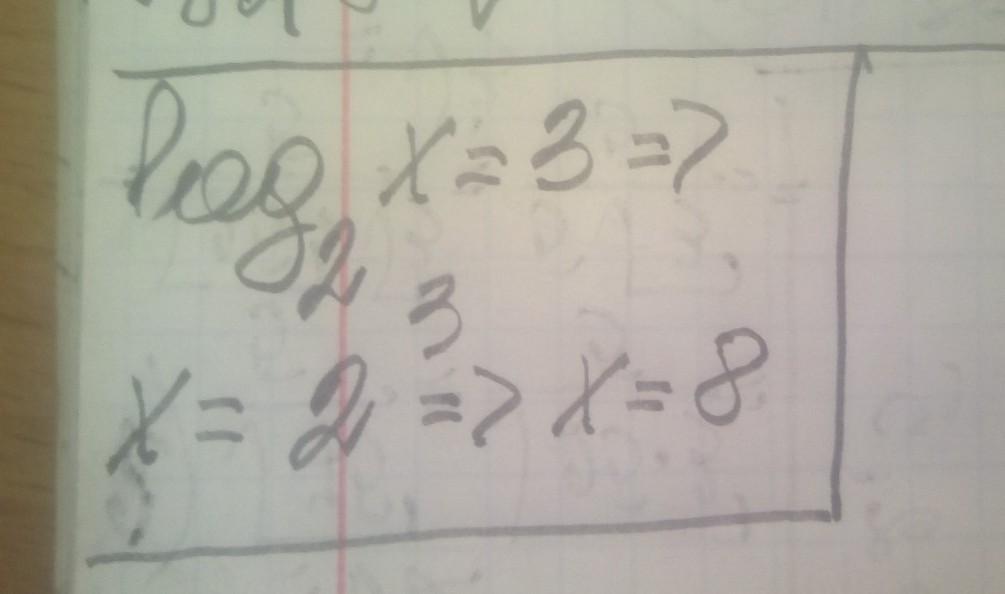 log₂ x = 3 =>
x = 2³ => x = 8